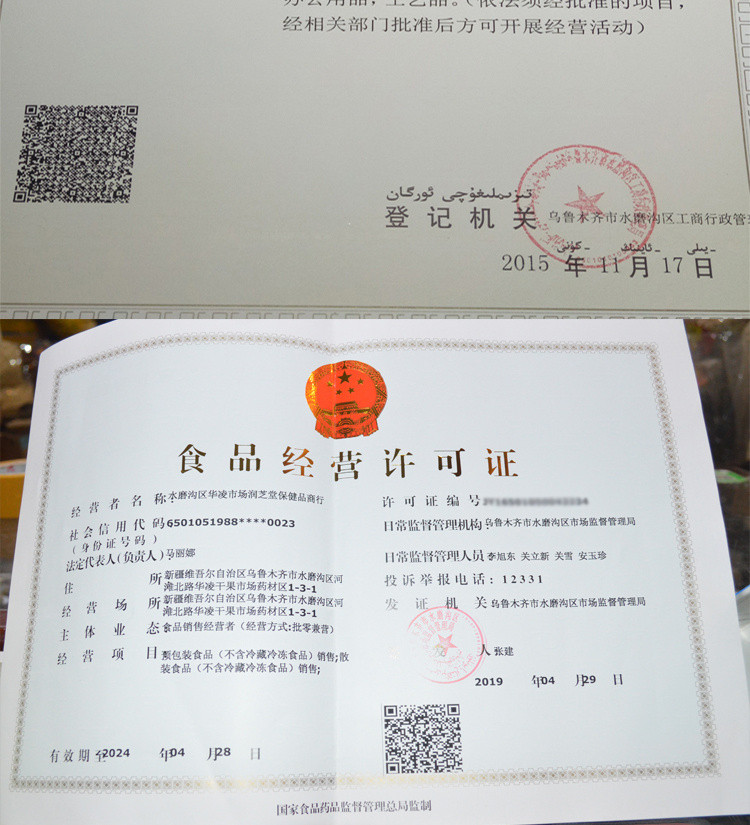 办公用品，工艺品。（依法须经批准的项目，
经相关部门批准后方可开展经营活动）
تىزىملىغۇچى ئورگان
登记机关 乌鲁木齐市水磨沟区工商行政管理
ـ يىلى ـ ئاينىڭ ـ كۈنى
2015 年 11 月 17 日
食品经营许可证
经营者名称 水磨沟区华凌市场润芝堂保健品商行
社会信用代码 6501051988****0023
（身份证号码）
法定代表人(负责人) 马丽娜
住所 新疆维吾尔自治区乌鲁木齐市水磨沟区河
滩北路华凌干果市场药材区1-3-1
经营场所 新疆维吾尔自治区乌鲁木齐市水磨沟区河
滩北路华凌干果市场药材区1-3-1
主体业态 食品销售经营者（经营方式:批零兼营）
经营项目 预包装食品（不含冷藏冷冻食品）销售;散
装食品（不含冷藏冷冻食品）销售;
有效期至 2024 年 04 月 28 日
许可证编号
日常监督管理机构 乌鲁木齐市水磨沟区市场监督管理局
日常监督管理人员 李旭东 关立新 关雪 安玉珍
投诉举报电话：12331
发证机关 乌鲁木齐市水磨沟区市场监督管理局
人 张建
2019 年 04 月 29 日
国家食品药品监督管理总局监制